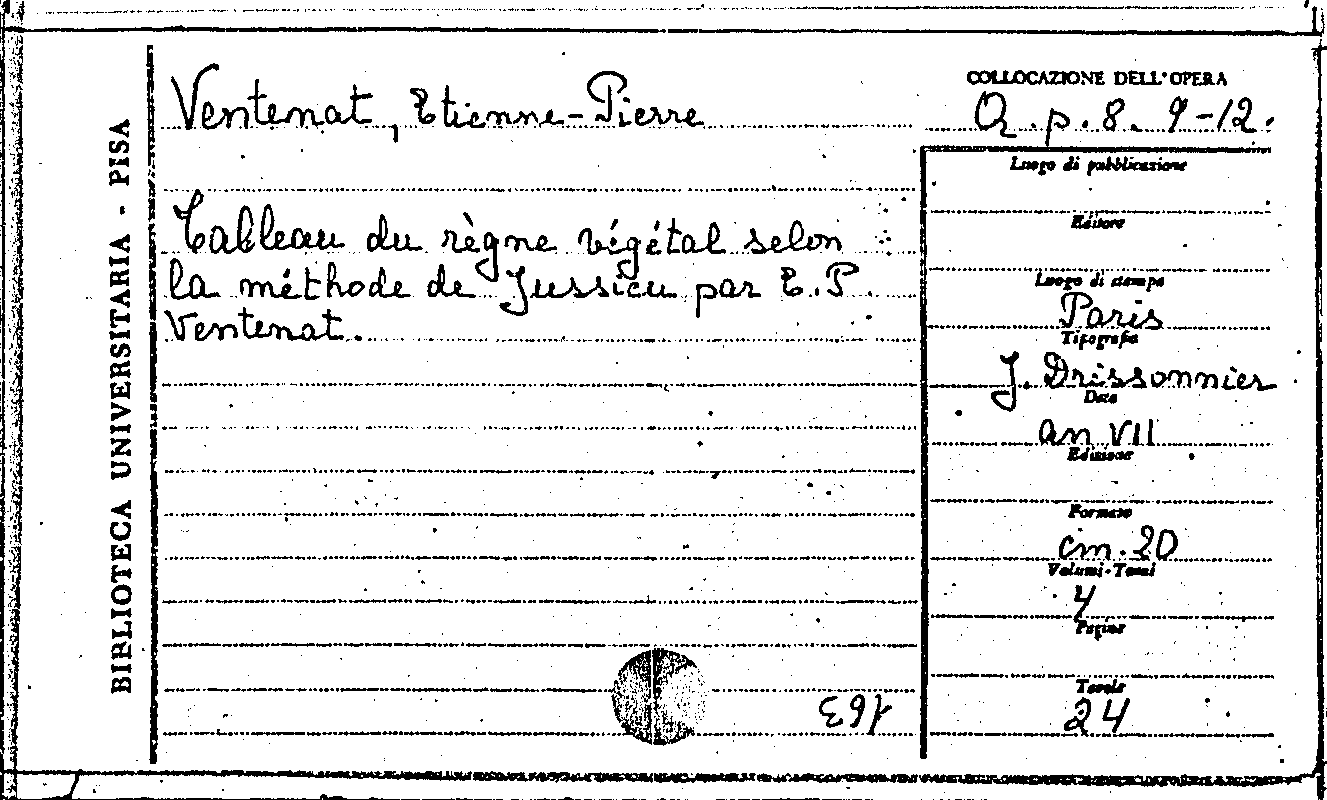 BIBLIOTECA UNIVERSITARIA - PISA
Ventenat, Etienne-Pierre
Tableau du règne végétal selon
la méthode de Jussieu par E.P.
Ventenat.
COLLOCAZIONE DELL'OPERA
Q.p.8. 9-12.
Luogo di pubblicazione
Editore
Luogo di stampa
Paris
Tipografia
J. Drissonnier
Data
an VII
Edizione
Formato
cm. 20
Volumi-Tomi
4
Pagine
Tavole
24